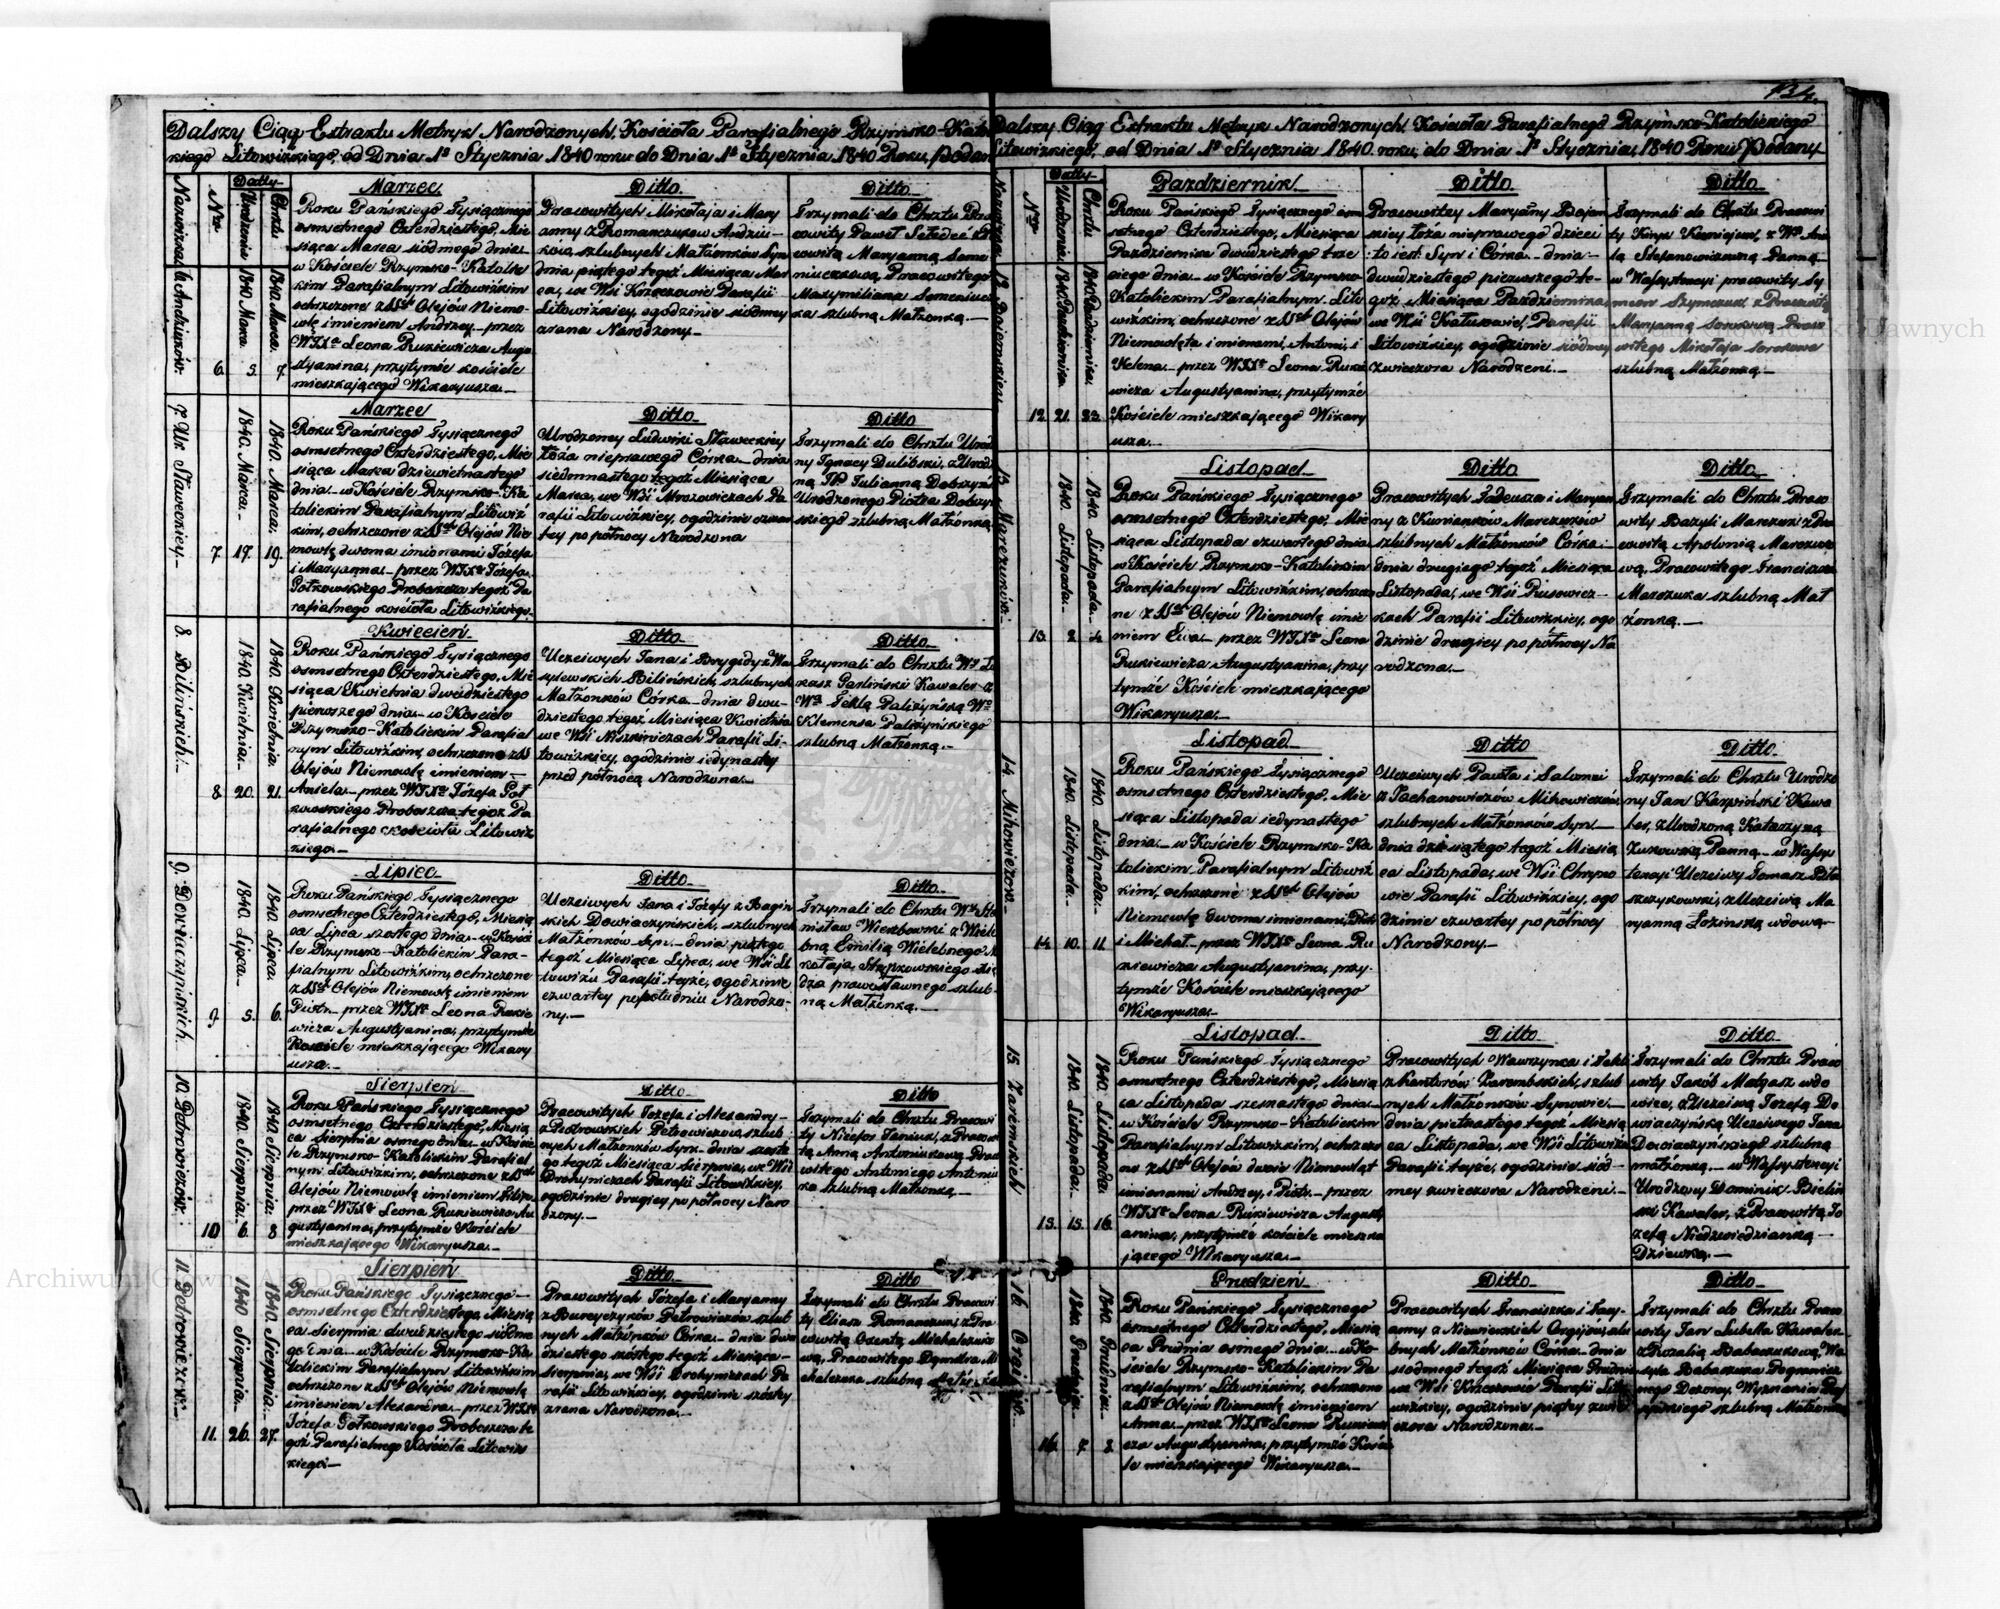 134.
Dalszy Ciąg Extraktu Metryk Narodzonych Kościoła Parafialnego Rzymsko-Kato
kiego Litowizkiego, od Dnia 1º Stycznia 1840 roku do Dnia 1º Stycznia 1840 Roku, Podan
Nazwizka
Nro
Datty
Urodzenia
Chrztu
6. Andziuków.
6. 5. 7.
1840. Marca.
1840. Marca.
Marzec
Roku Pańskiego Tysiącznego
osmsetnego Czterdziestego, Mie
siąca Marca siódmego dnia
w Kościele Rzymsko-Katolic
kim Parafialnym Litowizkim
ochrzczone z SSch Olejów Niemo-
wlę imieniem Andrzey przez
WJXa Leona Rukiewicza Augu
styanina, przytymże kościele
mieszkającego Wikaryusza.
Ditto
Pracowitych Mikołaja i Mary
anny z Romanczuków Andziu-
ków szlubnych Małżonków Syn
dnia piątego tegoż Miesiąca Mar
ca, we Wsi Krzeczowie Parafii
Litowizkiey, ogodzinie siódmey
zrana Narodzony.
Ditto
Trzymali do Chrztu Pra
cowity Paweł
cowitą Maryanną Seme
niuczową, Pracowitego
Maxymiliana Semeniu
ka szlubną Małżonką.
7. Ur. Sławeckiey.
7. 17. 19.
1840. Marca.
1840. Marca.
Marzec
Roku Pańskiego Tysiącznego
osmsetnego Czterdziestego, Mie
siąca Marca dziewietnastego
dnia w Kościele Rzymsko-Ka
tolickim Parafialnym Litowiz
kim, ochrzczone z SSch Olejów Nie
mowlę dwoma imionami Józefa
i Maryanna przez WJXa Józefa
Potkowskiego Proboszcza tegoż Pa
rafialnego kościoła Litowizkiego.
Ditto
Urodzoney Ludwiki Sławeckiey
Łoża nieprawego Córka dnia
siedmnastego tegoż Miesiąca
Marca, we Wsi Mrozowiczach Pa
rafii Litowizkiey, ogodzinie czwar
tey po północy Narodzona
Ditto
Trzymali do Chrztu Urod
ny Ignacy Dulibski, z Urod
ną Julianną Dobrzyns
Urodzonego Piotra Dobrzyn
skiego szlubną Małżonką
8. Bilińskich.
8. 20. 21.
1840. Kwietnia.
1840. Kwietnia.
Kwiecień
Roku Pańskiego Tysiącznego
osmsetnego Czterdziestego, Mie
siąca Kwietnia dwódziestego
pierwszego dnia w Kościele
Rzymsko-Katolickim Parafial
nym Litowizkim, ochrzczone z SS
Olejów Niemowlę imieniem
Aniela przez WJXa Józefa Pot
kowskiego Proboszcza tegoż Pa
rafialnego kościoła Litowiz
kiego.
Ditto
Uczciwych Jana i Brygidy z Wa
sylewskich Bilińskich, szlubnych
Małżonków Córka dnia dwu-
dziestego tegoż Miesiąca Kwietnia
we Wsi Niszkiniczach Parafii Li-
towizkiey, ogodzinie iedynastey
przed północą Narodzona.
Ditto
Trzymali do Chrztu
kasz Garliński Kawaler z
Teklą Palczyńską
Klemensa Palczyńskiego
szlubną Małżonką.
9. Dowiaczyńskich.
9. 5. 6.
1840. Lipca.
1840. Lipca.
Lipiec
Roku Pańskiego Tysiącznego
osmsetnego Czterdziestego, Miesią
ca Lipca szóstego dnia w Kości
le Rzymsko-Katolickim Para-
fialnym Litowizkim, ochrzczone
z SSch Olejów Niemowlę imieniem
Piotr przez WJXa Leona Rukie
wicza Augustyanina, przytymże
Kościele mieszkającego Wikary
usza.
Ditto
Uczciwych Jana i Józefy z Bagin
skich Dowiaczyńskich, szlubnych
Małżonków Syn dnia piątego
tegoż Miesiąca Lipca, we Wsi Li
towizu Parafii teyże, ogodzinie
czwartey popołudniu Narodzo-
ny.
Ditto
Trzymali do Chrztu
nisław Wierzbowski z Wiele
bną Emilią Wielebnego Mi
kołaja
dza prawosławnego szlub-
ną Małżonką.
10. Potrowiczów.
10 6. 8
1840. Sierpnia.
1840. Sierpnia.
Sierpień
Roku Pańskiego Tysiącznego
osmsetnego Czterdziestego, Miesią
ca Sierpnia osmego dnia w Kościo
le Rzymsko-Katolickim Parafial
nym Litowizkim, ochrzczone z SSch
Olejów Niemowlę imieniem Filip
przez WJXa Leona Rukiewicza Au
gustyanina, przytymże Kościele
mieszkającego Wikaryusza.
Ditto
Pracowitych Józefa i Alexandry
z Piotrowskich Petrowiczów szlub
nych Małżonków Syn dnia szoste
go tegoż Miesiąca Sierpnia, we Wsi
Drohyniczach Parafii Litowizkiey,
ogodzinie drugiey po północy Naro
dzony.
Ditto
Trzymali do Chrztu Pracowi
ty Nicefor Taniuk, z Pracowi
tą Anną Antoniukową Prac
witego Antoniego Antoniu
ka szlubną Małżonką.
11. Petrowiczówki.
11. 26. 27.
1840 Sierpnia.
1840. Sierpnia.
Sierpień
Roku Pańskiego Tysiącznego
osmsetnego Czterdziestego, Miesią
ca Sierpnia dwudziestego siódme
go dnia w Kościele Rzymsko-Ka
tolickim Parafialnym Litowizkim
ochrzczone z SSch Olejów Niemowlę
imieniem Alexandra przez WJXa
Józefa Potkowskiego Proboszcza te
goż Parafialnego Kościoła Litowiz
kiego.
Ditto
Pracowitych Józefa i Maryanny
z Petrowiczów szlub
nych Małżonków Córka dnia dwu
dziestego szóstego tegoż Miesiąca
Sierpnia, we Wsi Drohyniczach Pa
rafii Litowizkiey, ogodzinie szóstey
zrana Narodzona.
Ditto
Trzymali do Chrztu Pracowi
ty Eliasz Romanczuk, z Pra
cowitą Michalczuko
wą, Pracowitego Dymitra Mi
chalczuka szlubną
Dalszy Ciąg Extraktu Metryk Narodzonych Kościoła Parafialnego Rzymsko-Katolickiego
Litowizkiego, od Dnia 1º Stycznia 1840. roku, do Dnia 1º Stycznia 1840 Roku Podany
Nro
Datty
Urodzenia
Chrztu
12. 21. 23.
1840. Października
1840. Października
Pazdziernik
Roku Pańskiego Tysiącznego osm
setnego Czterdziestego, Miesiąca
Pazdziernika dwudziestego trze
ciego dnia w Kościele Rzymsko-
Katolickim Parafialnym Lito
wizkim, ochrzczone z SSch Olejów
Niemowlęta imionami, Antoni, i
Helena przez WJXa Leona Rukie
wicza Augustyanina, przytymże
Kościele mieszkającego Wikary
usza.
Ditto
Pracowitey Maryanny Bojem
skiey łoża nieprawego dzieci
to iest: Syn i Córka dnia
dwudziestego pierwszego te-
goż Miesiąca Pazdziernika,
we Wsi Kałusowie, Parafii
Litowizkiey, ogodzinie siódmey
zwieczora Narodzeni.
Ditto
Trzymali do Chrztu Pracowi
ty z
lą Stefanowiczowną Panną
w Wassystencyi pracowity Sy
meon Szymczuk z Pracowitą
Maryanną Sorokową Praco
witego Mikołaja Soroki
szlubną Małżonką.
13. Marczuków.
13. 2. 4.
1840. Listopada.
1840. Listopada.
Listopad
Roku Pańskiego Tysiącznego
osmsetnego Czterdziestego, Mie
siąca Listopada czwartego dnia
w Kościele Rzymsko-Katolickim
Parafialnym Litowizkim, ochrzczo
ne z SSch Olejów Niemowlę imie
niem Ewa przez WJXa Leona
Rukiewicza Augustyanina, przy
tymże Kościele mieszkającego
Wikaryusza.
Ditto
Pracowitych Tadeusza i Maryan
ny z Marczuków
szlubnych Małżonków Córka
dnia drugiego tegoż Miesiąca
Listopada, we Wsi Rusowicz-
kach Parafii Litowizkiey, ogo
dzinie drugiey po północy Na
rodzona.
Ditto
Trzymali do Chrztu Praco
wity Bazyli Marczuk z Pra
cowitą Apolonią Marczuko
wą, Pracowitego Franciszka
Marczuka szlubną Mał
żonką.
14. Mikowiczów.
14. 10. 11.
1840. Listopada.
1840. Listopada.
Listopad
Roku Pańskiego Tysiącznego
osmsetnego Czterdziestego, Mie
siąca Listopada iedynastego
dnia w Kościele Rzymsko-Ka
tolickim Parafialnym Litowiz
kim, ochrzczone z SSch Olejów
Niemowlę dwoma imionami
i Michał przez WJXa Leona Ru
kiewicza Augustyanina, przy-
tymże Kościele mieszkającego
Wikaryusza.
Ditto
Uczciwych Pawła i Salomei
z Pachanowiczów Mikowiczów
szlubnych Małżonków Syn
dnia dziesiątego tegoż Miesią
ca Listopada, we Wsi Chrypo
wie Parafii Litowizkiey, ogo
dzinie czwartey po północy
Narodzony.
Ditto
Trzymali do Chrztu Urodzo
ny Jan Karpiński Kawa
ler, z Urodzoną Katarzyną
Żukowską Panną w Wassys
tencyi Uczciwy Tomasz
szczykowski, z Uczciwą Ma
ryanną Łozinską wdową
15. Zarembskich
15. 15. 16.
1840. Listopada.
1840. Listopada.
Listopad
Roku Pańskiego Tysiącznego
osmsetnego Czterdziestego, Miesią
ca Listopada szesnastego dnia
w Kościele Rzymsko-Katolickim
Parafialnym Litowizkim, ochrzczo
no z SSch Olejów dwoie Niemowląt
imionami Andrzey, i Piotr przez
WJXa Leona Rukiewicza Augusty
anina, przytymże kościele mieszka
jącego Wikaryusza.
Ditto
Pracowitych Wawrzynca i Tekli
z Kantorów Zarembskich, szlub
nych Małżonków Synowie
dnia piętnastego tegoż Miesią
ca Listopada, we Wsi Litowizu
Parafii teyże, ogodzinie siód-
mey zwieczora Narodzeni.
Ditto
Trzymali do Chrztu Praco
wity Jakób Małgasz wdo
wiec, z Uczciwą Józefą Do
wiaczyńską Uczciwego Jana
Dowiaczyńskiego szlubną
małżonką. w Wassystencyi
Urodzony Dominik Bielin
ski Kawaler, z Pracowitą Jo
zefą Niedzwiedzianką
Dziewką.
16
16. 7. 8.
1840 Grudnia
1840. Grudnia.
Grudzień
Roku Pańskiego Tysiącznego
osmsetnego Czterdziestego, Miesią
ca Grudnia osmego dnia w Ko-
ściele Rzymsko-Katolickim Pa
rafialnym Litowizkim, ochrzczone
z SSch Olejów Niemowlę imieniem
Anna przez WJXa Leona Rukiewi
cza Augustyanina, przytymże Kości
le mieszkającego Wikaryusza.
Ditto
Pracowitych Franciszka i Mary
anny z Niewierskich szlu
bnych Małżonków Córka dnia
siódmego tegoż Miesiąca Grudnia
we Wsi Krzeczowie Parafii Lito
wizkiey, ogodzinie piątey zwie
czora Narodzona.
Ditto
Trzymali do Chrztu Praco
wity Jan Kawaler
z Rozalią Babaczukową, Wa
syla Babaczuka Pogranicz
nego Dozorcy, Wyznania
szlubną Małżonką
Archiwum Główne Akt Dawnych